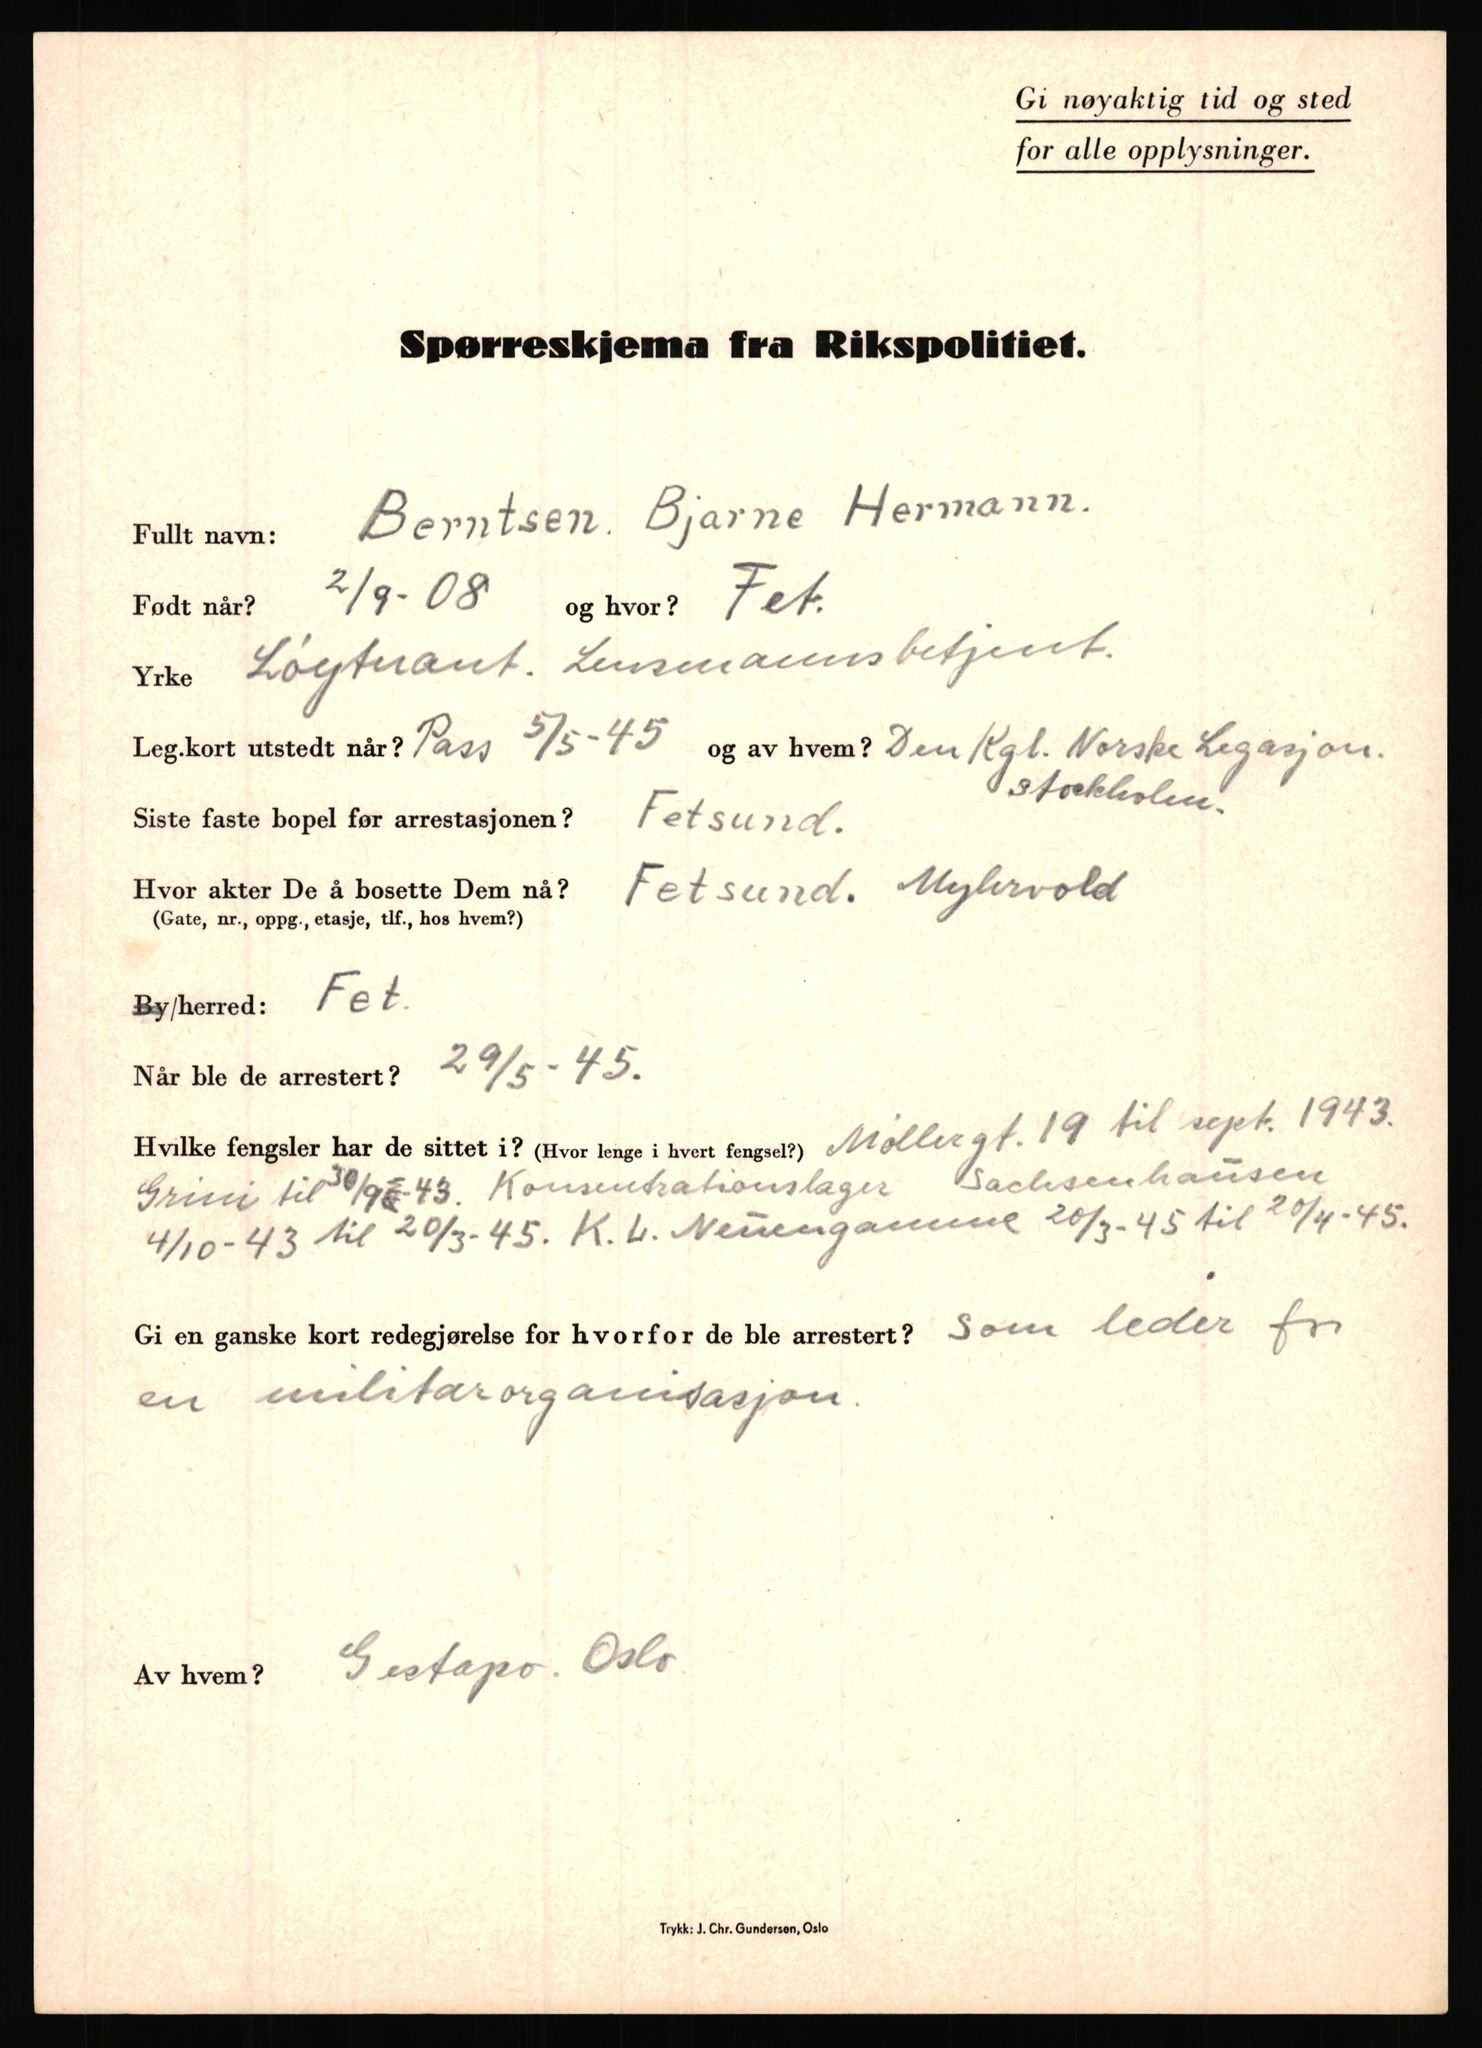 Gi nøyaktig tid og sted
for alle opplysninger.
Spørreskjema fra Rikspolitiet.
Fullt navn: Berntsen. Bjarne Hermann.
Født når? 2/9-08 og hvor? Fet.
Yrke Løytnant. Lensmannsbetjent.
Leg.kort utstedt når? Pass 5/5-45 og av hvem? Den Kgl. Norske Legasjon.
Stockholm.
Siste faste bopel før arrestasjonen? Fetsund.
Hvor akter De å bosette Dem nå? Fetsund. Myhrvold
(Gate, nr., oppg., etasje, tlf., hos hvem?)
By/herred: Fet.
Når ble de arrestert? 29/5-45.
Hvilke fengsler har de sittet i? (Hvor lenge i hvert fengsel?) Møllergt. 19 til sept. 1943.
Grini til 30/9-43. Konsentrationslager Sachsenhausen
4/10-43 til 20/3-45. K. L. Neuengamme 20/3-45 til 20/4-45.
Gi en ganske kort redegjørelse for hvorfor de ble arrestert? Som leder for
en militærorganisasjon.
Av hvem? Gestapo. Oslo
Trykk: J. Chr. Gundersen, Oslo